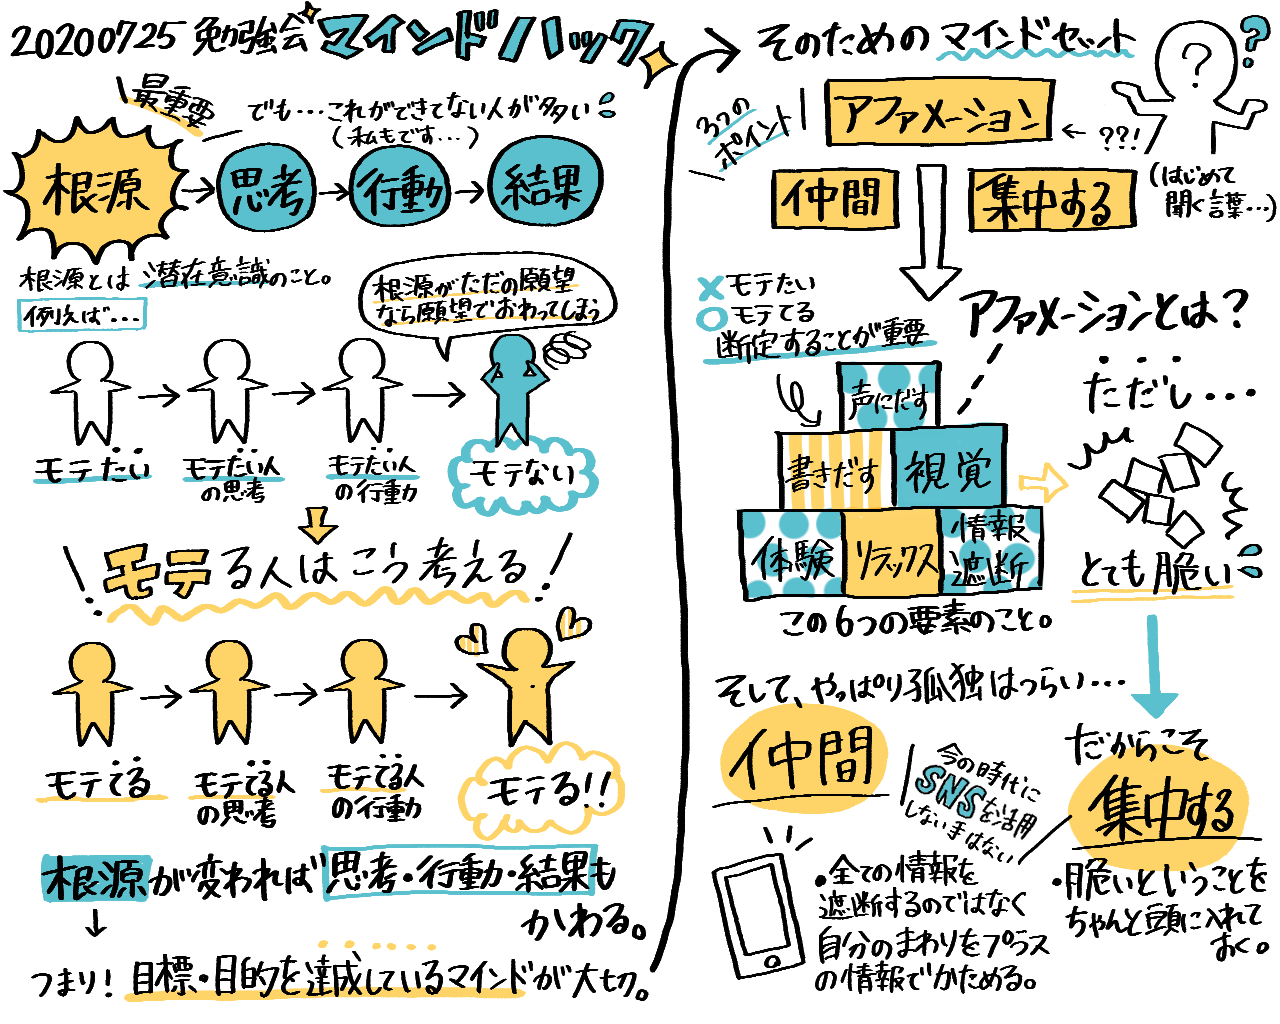 20200725 勉強会 マインドハック
最重要
でも…これができてない人が多い
(私もです…)
根源 → 思考 → 行動 → 結果
根源とは 潜在意識のこと。
例えば…
根源がただの願望
なら願望でおわってしまう
モテたい
モテたい人
の思考
モテたい人
の行動
モテない
モテる人はこう考える
モテてる
モテてる人
の思考
モテてる人
の行動
モテる!!
根源が変われば 思考・行動・結果も
かわる。
つまり! 目標・目的を達成しているマインドが大切。
そのための マインドセット
3つの
ポイント
アファメーション
← ??!
?
?
?
(はじめて
聞く言葉…)
仲間
集中する
×モテたい
○モテてる
断定することが重要
アファメーションとは?
声にだす
書きだす
視覚
体験
リラックス
情報
遮断
この6つの要素のこと。
ただし…
とても脆い
だからこそ
集中する
・脆いということを
ちゃんと頭に入れて
おく。
そして、やっぱり孤独はつらい…
仲間
今の時代に
SNSを活用
しない手はない
・全ての情報を
遮断するのではなく
自分のまわりをプラス
の情報でかためる。